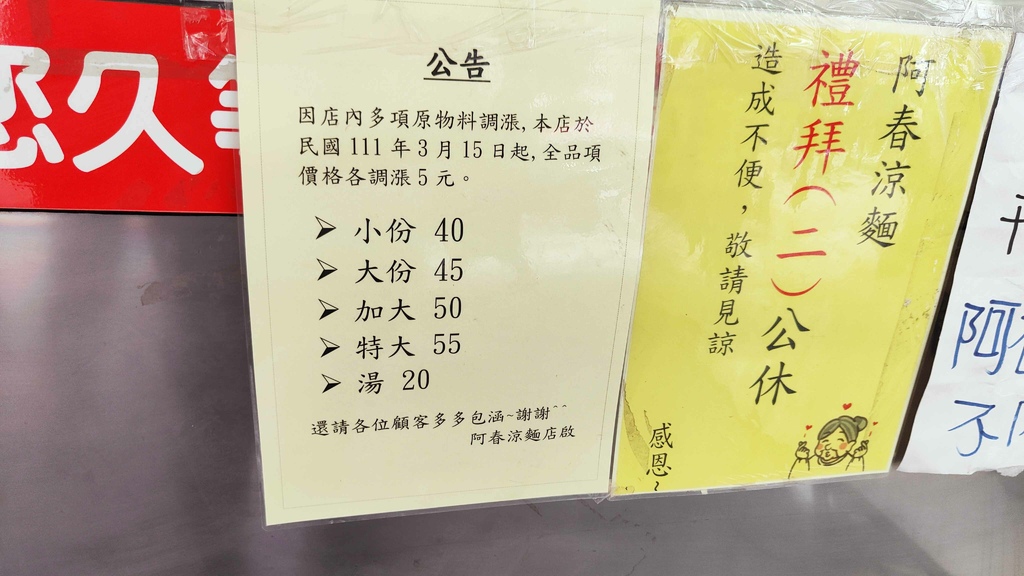 您久等
公告
因店內多項原物料調漲,本店於
民國 111 年 3 月 15 日起,全品項
價格各調漲 5 元。
➢ 小份 40
➢ 大份 45
➢ 加大 50
➢ 特大 55
➢ 湯 20
還請各位顧客多多包涵~謝謝^^
阿春涼麵店啟
阿春涼麵
禮拜(二)公休
造成不便,敬請見諒
感恩~
阿
不